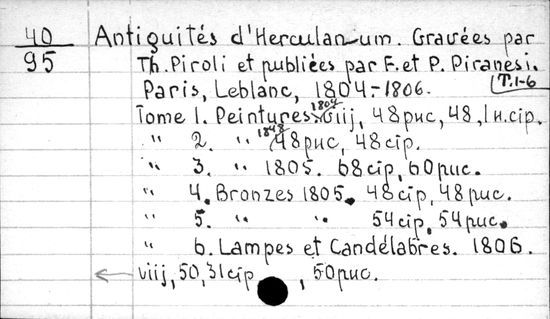 40/95 Antiquités d'Herculan-um. Gravées par
Th. Piroli et publiées par F. et P. Piranesi.
Paris, Leblanc, 1804-1806. T.1-6
Tome 1. Peintures 1804 viij, 48рис, 48, 1 н.стр.
" 2. " 48рис, 48стр.
" 3. " 1805. 68стр, 60рис.
" 4. Bronzes 1805. 48стр, 48рис.
" 5. " " 54стр, 54рис.
" 6. Lampes et Candélabres. 1806.
viij, 50, 31стр, 50рис.